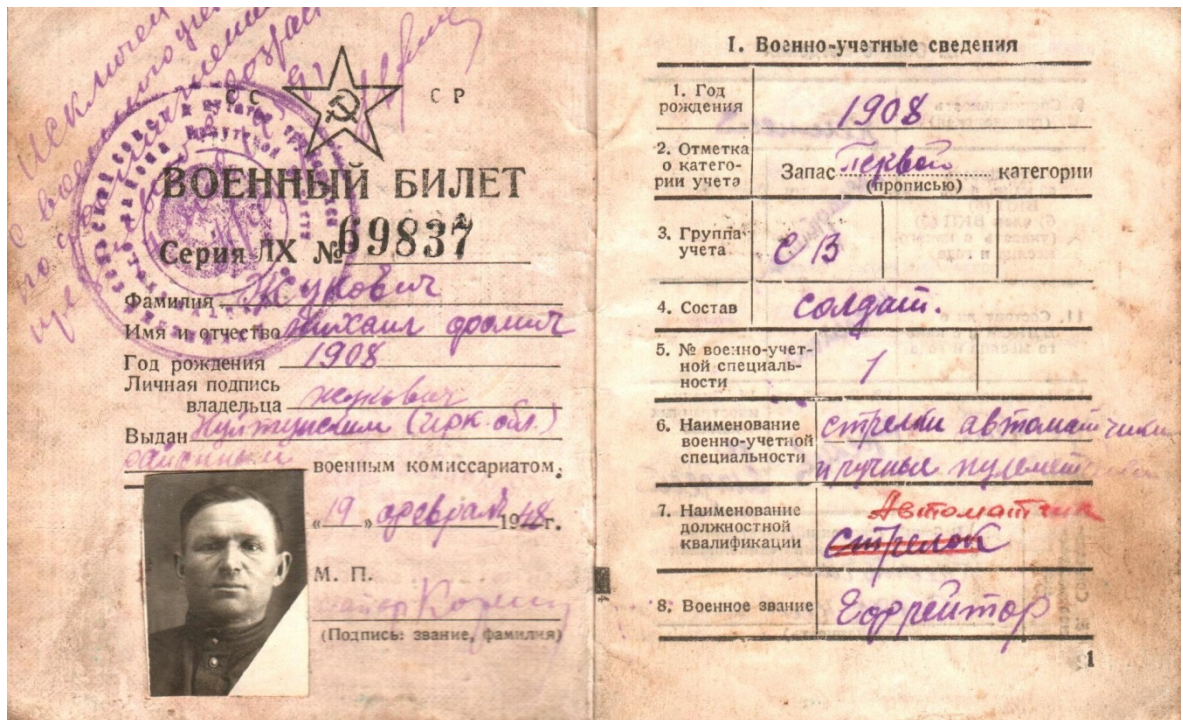 Исключен
с воинского учета
по
СС СР
ВОЕННЫЙ БИЛЕТ
Серия ЛХ № 69837
Фамилия Жукович
Имя и отчество Михаил Фомич
Год рождения 1908
Личная подпись
владельца Жукович
Выдан Култукским (Ирк. обл.)
районным военным комиссариатом.
«19» февраля 1948 г.
М. П.
майор
(Подпись: звание, фамилия)
I. Военно-учетные сведения
1. Год
рождения
1908
2. Отметка
о катего-
рии учета
Запас Первой категории
(прописью)
3. Группа
учета
СВ
4. Состав
солдат.
5. № военно-учет-
ной специаль-
ности
1
6. Наименование
военно-учетной
специальности
стрелки автоматчики
и ручные пулеметчики
7. Наименование
должностной
квалификации
Автоматчик
Стрелок
8. Военное звание
Ефрейтор
1